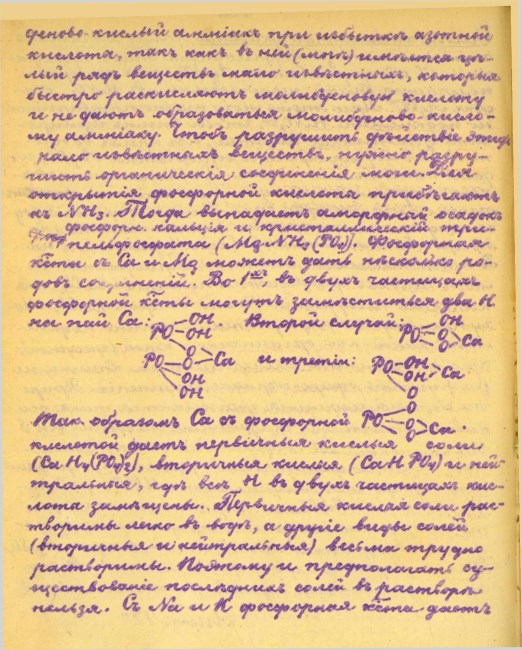 феново-кислый амміакъ при избыткѣ азотной
кислоты, такъ какъ въ ней (мочѣ) имѣется цѣ-
лый рядъ веществъ мало извѣстныхъ, которыя
быстро раскисляютъ молибденовую кислоту
и не даютъ образоваться молибденово-кисло-
му амміаку. Чтобъ разрушить дѣйствіе этихъ
мало извѣстныхъ веществъ, нужно разру-
шить органическія соединенія мочи. Для
открытія фосфорной кислоты прибѣгаютъ
къ NH3. Тогда выпадаетъ аморфный осадокъ
фосфорн. кальція и кристаллическій три-
пельфосфата (MgNH4(PO4)). Фосфорная
к̃та съ Ca и Mg можетъ дать нѣсколько ро-
довъ соединеній. Во 1ыхъ въ двухъ частицахъ
фосфорной к̃ты могутъ замѣститься два H
на пай Ca: Второй случай:
PO OH OH O O Ca PO O OH OH
и третій:
PO OH O O Ca PO OH OH Ca O O PO O O Ca
Так. образомъ Ca съ фосфорной
кислотой даетъ первичныя кислыя соли
(CaH4(PO4)2), вторичныя кислыя (CaHPO4) и ней-
тральныя, гдѣ всѣ H въ двухъ частицахъ кис-
лота замѣщены. Первичныя кислыя соли рас-
творимы легко въ водѣ, а другіе виды солей
(вторичныя и нейтральныя) весьма трудно
растворимы. Поэтому и предполагать су-
ществованіе послѣднихъ солей въ растворѣ
нельзя. Съ Na и K фосфорная к̃та даетъ